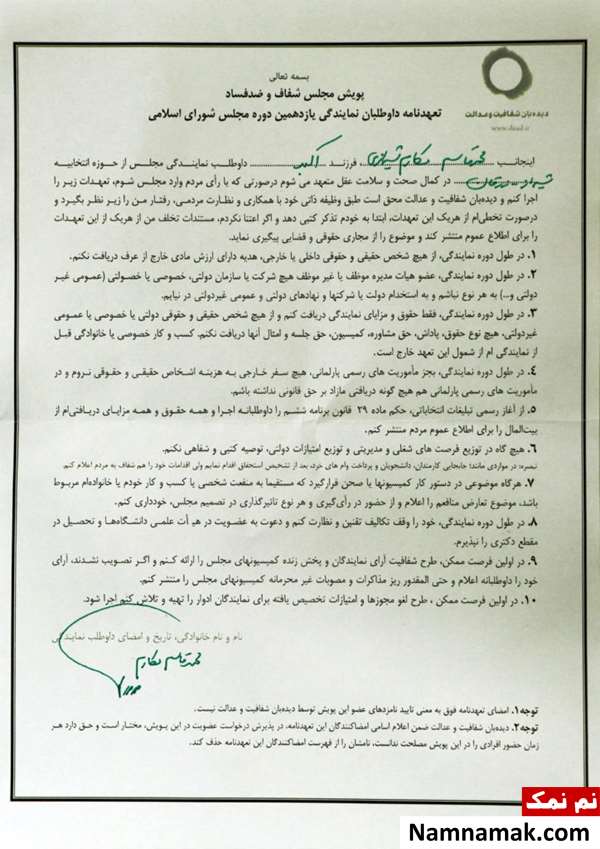 بسمه تعالی
پویش مجلس شفاف و ضدفساد
تعهدنامه داوطلبان نمایندگی یازدهمین دوره مجلس شورای اسلامی
دیده‌بان شفافیت و عدالت
www.dead.ir
اینجانب محمدقاسم مکارم شیرازی، فرزند داوطلب نمایندگی مجلس از حوزه انتخابیه
شیراز در کمال صحت و سلامت عقل متعهد می شوم درصورتی که با رأی مردم وارد مجلس شوم، تعهدات زیر را
اجرا کنم و دیده‌بان شفافیت و عدالت محق است طبق وظیفه ذاتی خود با همکاری و نظارت مردمی، رفتار من را زیر نظر بگیرد و
درصورت تخطی‌ام از هریک این تعهدات، ابتدا به خودم تذکر کتبی دهد و اگر اعتنا نکردم، مستندات تخلف من از هریک از این تعهدات
را برای اطلاع عموم منتشر کند و موضوع را از مجاری حقوقی و قضایی پیگیری نماید.
۱. در طول دوره نمایندگی، از هیچ شخص حقیقی و حقوقی داخلی یا خارجی، هدیه دارای ارزش مادی خارج از عرف دریافت نکنم.
۲. در طول دوره نمایندگی، عضو هیات مدیره موظف یا غیر موظف هیچ شرکت یا سازمان دولتی، خصوصی یا خصولتی (عمومی غیر
دولتی و...) به هر نوع نباشم و به استخدام دولت یا شرکتها و نهادهای دولتی و عمومی غیردولتی در نیایم.
۳. در طول دوره نمایندگی، فقط حقوق و مزایای نمایندگی دریافت کنم و از هیچ شخص حقیقی و حقوقی دولتی یا خصوصی یا عمومی
غیردولتی، هیچ نوع حقوق، پاداش، حق مشاوره، کمیسیون، حق جلسه و امثال آنها دریافت نکنم. کسب و کار خصوصی یا خانوادگی قبل
از نمایندگی ام از شمول این تعهد خارج است.
۴. در طول دوره نمایندگی، بجز مأموریت های رسمی پارلمانی، هیچ سفر خارجی به هزینه اشخاص حقیقی و حقوقی نروم و در
مأموریت های رسمی پارلمانی هم هیچ گونه دریافتی مازاد بر حق قانونی نداشته باشم.
۵. از آغاز رسمی تبلیغات انتخاباتی، حکم ماده ۲۹ قانون برنامه ششم را داوطلبانه اجرا و همه حقوق و همه مزایای دریافتی‌ام از
بیت‌المال را برای اطلاع عموم مردم منتشر کنم.
۶. هیچ گاه در توزیع فرصت های شغلی و مدیریتی و توزیع امتیازات دولتی، توصیه کتبی و شفاهی نکنم.
تبصره: در مواردی مانند؛ جابجایی کارمندان، دانشجویان و پرداخت وام های خرد، بعد از تشخیص استحقاق اقدام نمایم ولی اقدامات خود را هم شفاف به مردم اعلام کنم.
۷. هرگاه موضوعی در دستور کار کمیسیونها یا صحن قرارگیرد که مستقیما به منفعت شخصی یا کسب و کار خودم یا خانواده‌ام مربوط
باشد، موضوع تعارض منافعم را اعلام و از حضور در رأی‌گیری و هر نوع تاثیرگذاری در تصمیم مجلس، خودداری کنم.
۸. در طول دوره نمایندگی، خود را وقف تکالیف تقنین و نظارت کنم و دعوت به عضویت در هیأت علمی دانشگاه‌ها و تحصیل در
مقطع دکتری را نپذیرم.
۹. در اولین فرصت ممکن، طرح شفافیت آرای نمایندگان و پخش زنده کمیسیونهای مجلس را ارائه کنم و اگر تصویب نشدند، آرای
خود را داوطلبانه اعلام و حتی المقدور ریز مذاکرات و مصوبات غیر محرمانه کمیسیونهای مجلس را منتشر کنم.
۱۰. در اولین فرصت ممکن ، طرح لغو مجوزها و امتیازات تخصیص یافته برای نمایندگان ادوار را تهیه و تلاش کنم اجرا شود.
نام و نام خانوادگی، تاریخ و امضای داوطلب نمایندگی
محمدقاسم مکارم
توجه۱. امضای تعهدنامه فوق به معنی تایید نامزدهای عضو این پویش توسط دیده‌بان شفافیت و عدالت نیست.
توجه۲. دیده‌بان شفافیت و عدالت ضمن اعلام اسامی امضاکنندگان این تعهدنامه، در پذیرش درخواست عضویت در این پویش، مختار است و حق دارد هر
زمان حضور افرادی را در این پویش مصلحت ندانست، نامشان را از فهرست امضاکنندگان این تعهدنامه حذف کند.
نم نمک
Namnamak.com